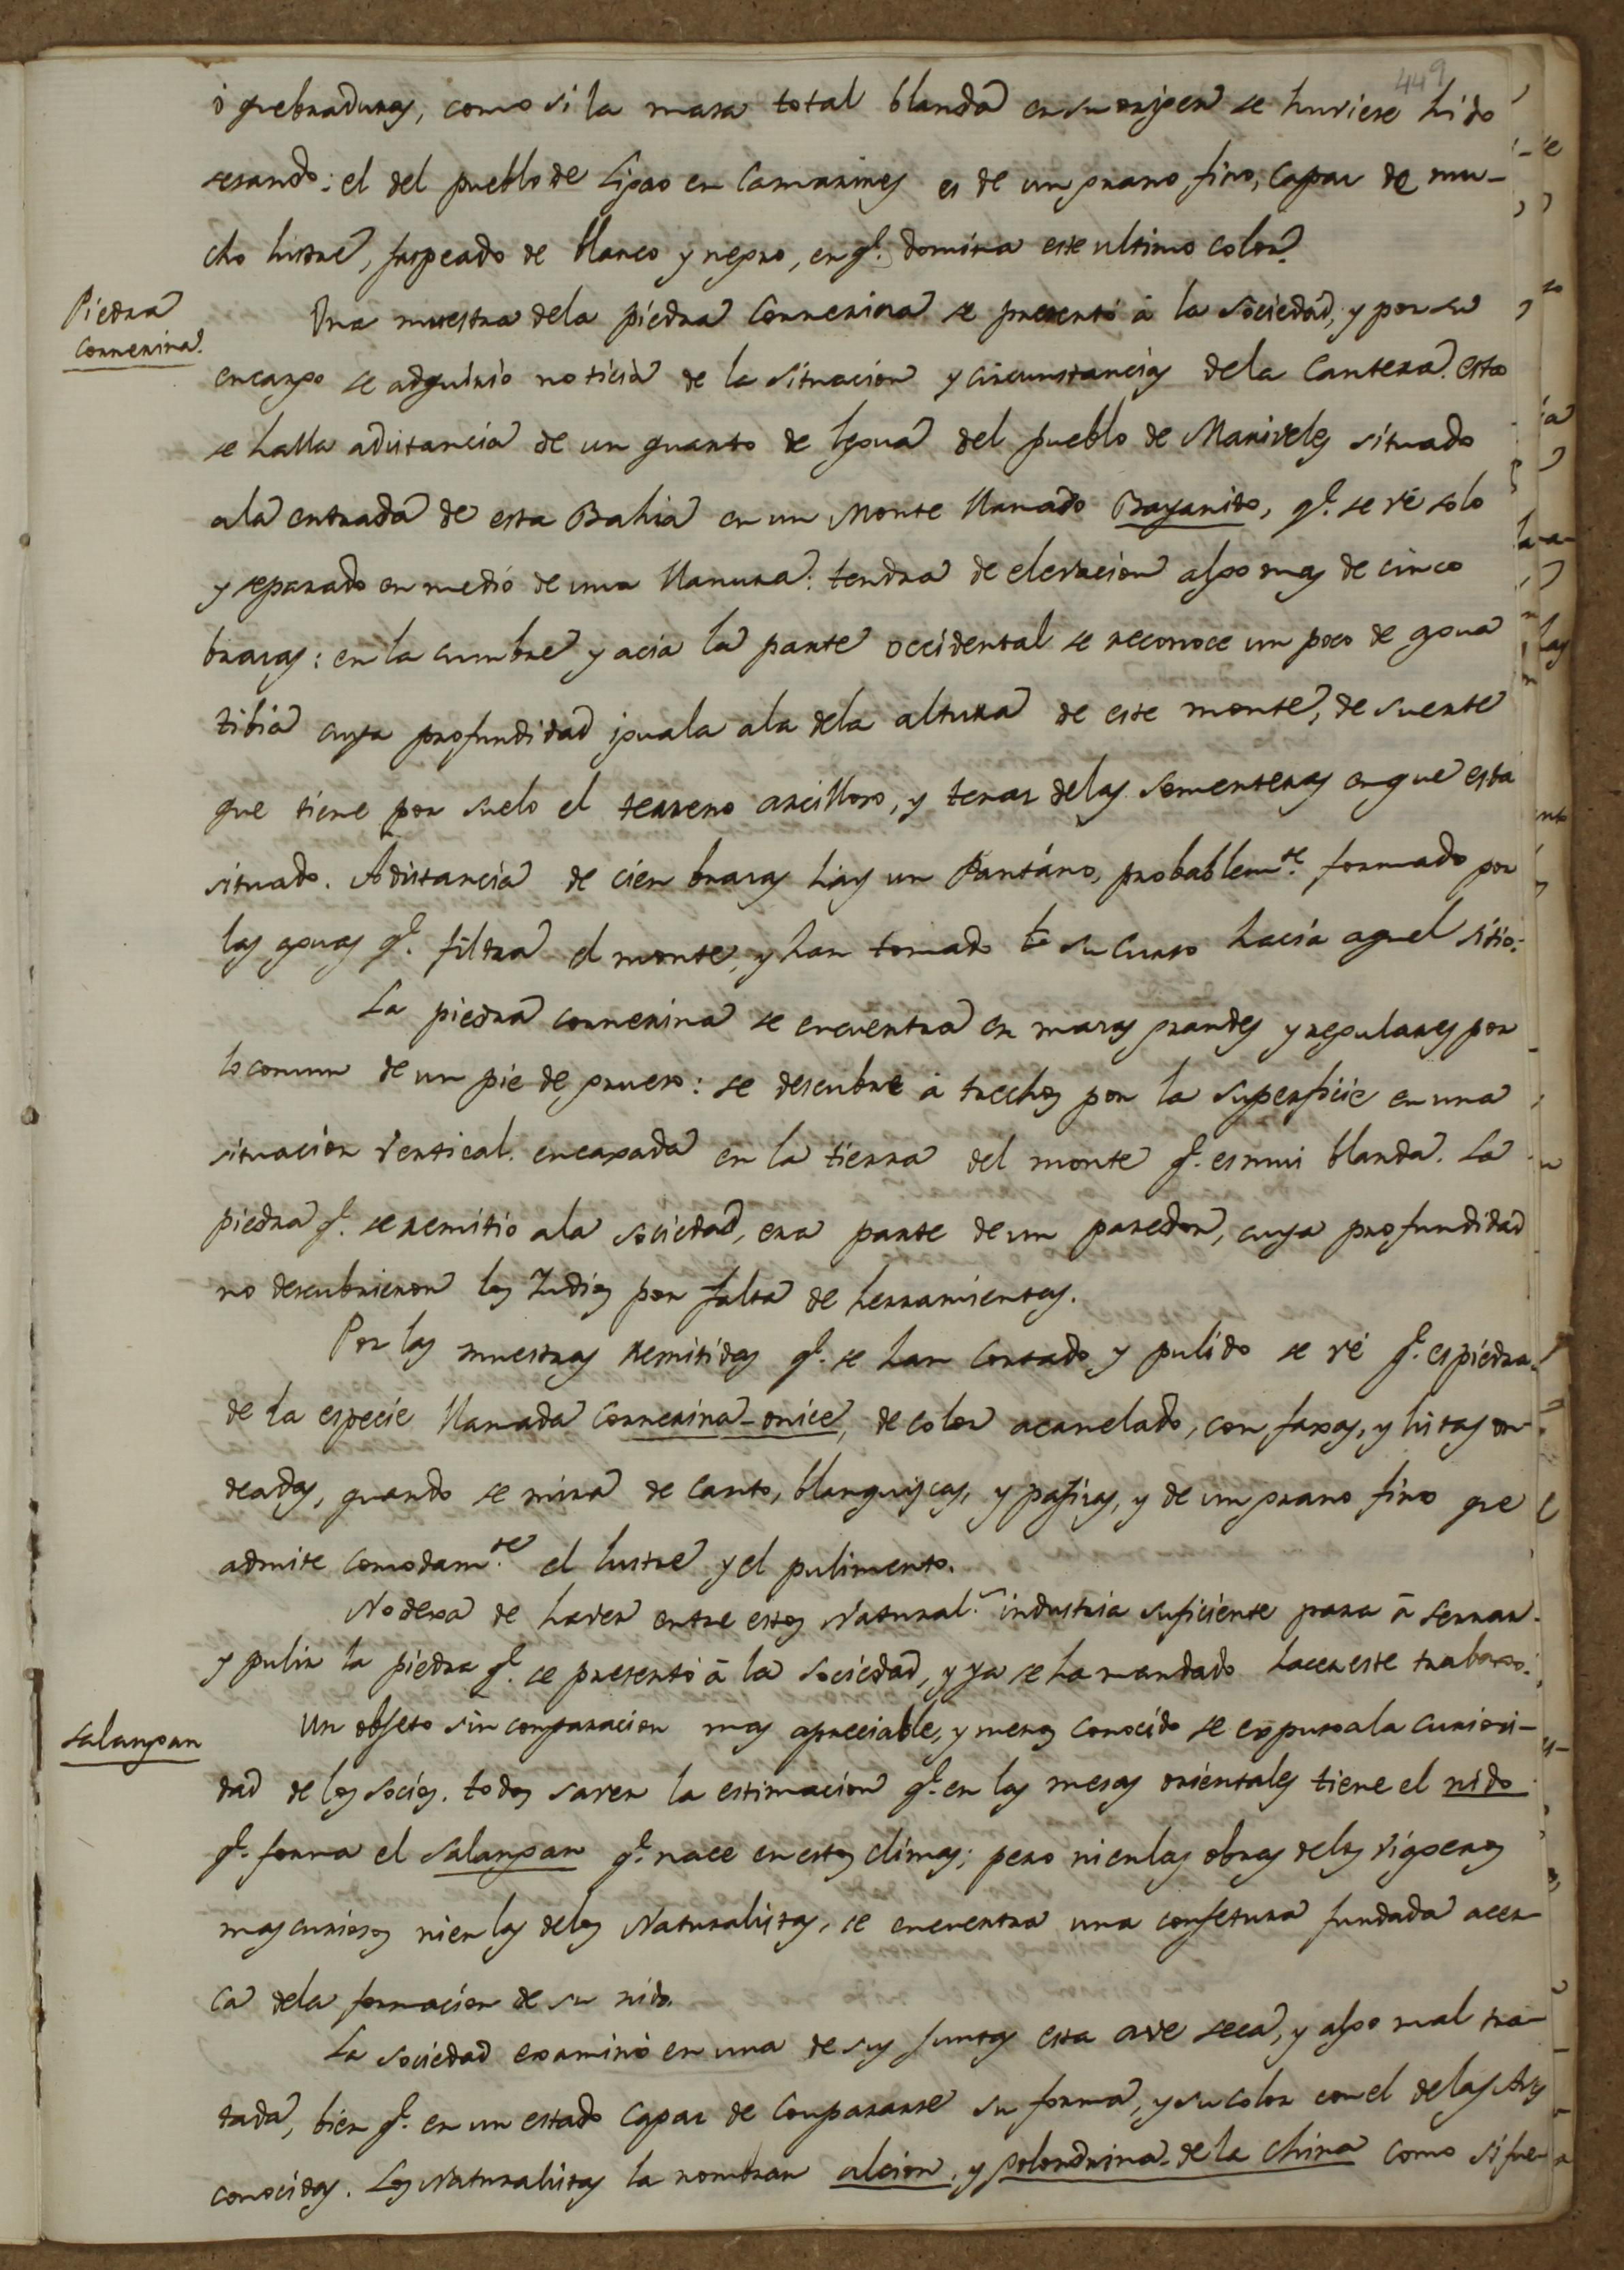 449
ò quebraduras, como si la masa total blanda en su origen se huviese hido
secando: el del pueblo de Ligao en Camarines es de un grano fino, capaz de mu-
cho lustre, jaspeado de blanco y negro, en q.e domina este ultimo color.
Piedra
Cornerina.
Una muestra dela piedra Cornerina se presentó à la Sociedad, y por su
encargo se adquirio noticia de la situacion y circunstancias dela Cantera. esta
se halla adistancia de un quarto de legua del pueblo de Mariveles situado
ala entrada de esta Bahia en un Monte llamado Bayanito, q.e se vé solo
y separado en medio de una llanura: tendra de elevacion algo mas de cinco
brazas: en la cumbre y acia la parte occidental se reconoce un pozo de agua
tibia cuya profundidad iguala ala dela altura de este monte, de suerte
que tiene por suelo el terreno arcilloso, y tenaz delas sementeras en que esta
situado. Adistancia de cien brazas hay un Pantáno, probablem.te formado por
las aguas q.e filtra el monte, y han tomado su Curso hacia aquel sitio.
La piedra cornerina se encuentra en masas grandes y regulares por
lo comun de un pie de grueso: se descubre à trechos por la superficie en una
situacion vertical encaxada en la tierra del monte q.e es mui blanda. La
piedra q.e se remitio ala Sociedad, era parte de un paredon, cuya profundidad
no descubrieron los Indios por falta de herramientas.
Por las muestras remitidas q.e se han Cortado y pulido se vé q.e es piedra
de la especie llamada Cornerina-onice, de color acanelado, con faxas, y listas on-
deadas, quando se mira de Canto, blanquiscas, y pajizas, y de un grano fino que
admite comodam.te el lustre y el pulimento.
No dexa de haver entre estos Natural.s industria suficiente para à serrar
y pulir la piedra q.e se presentó à la Sociedad, y ya se ha mandado hacer este trabaxo.
Salangan
Un objeto sin comparacion mas apreciable, y menos conocido se expuso ala curiosi-
dad de los Socios. todos saven la estimacion q.e en las mesas orientales tiene el nido
q.e forma el Salangan q.e nace en estos climas; pero ni en las obras delos viageros
mas curiosos ni en las delos Naturalistas, se encuentra una conjetura fundada acer-
ca dela formacion de su nido.
La Sociedad examinó en una de sus juntas esta ave seca, y algo mal tra-
tada, bien q.e en un estado capaz de Compararse su forma, y su color con el delas Aves
conocidas. Los Naturalistas la nombran alcion, y golondrina de la China como si fue-